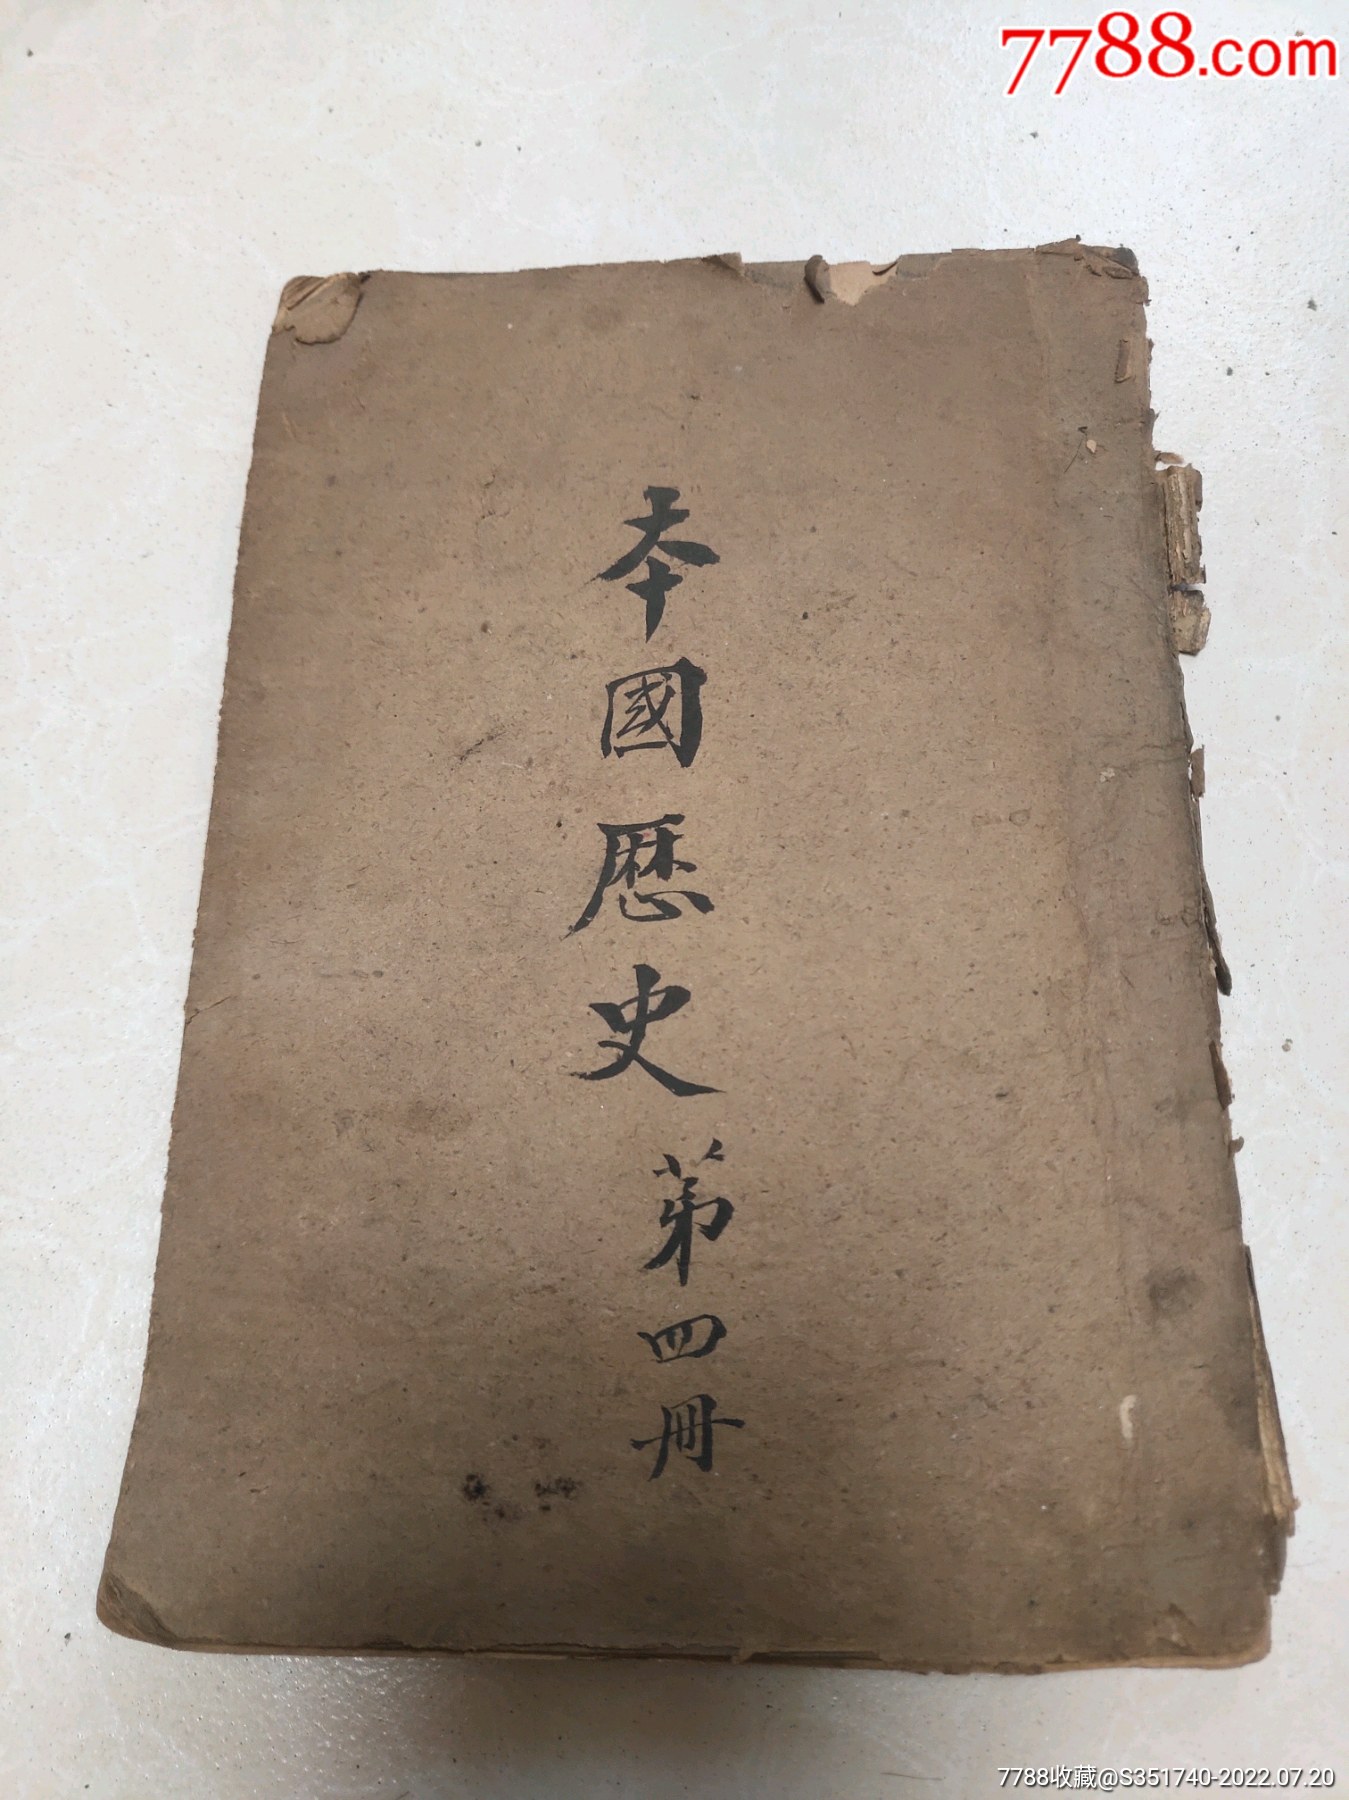 7788.com
本國歷史第四冊
7788收藏@S351740-2022.07.20